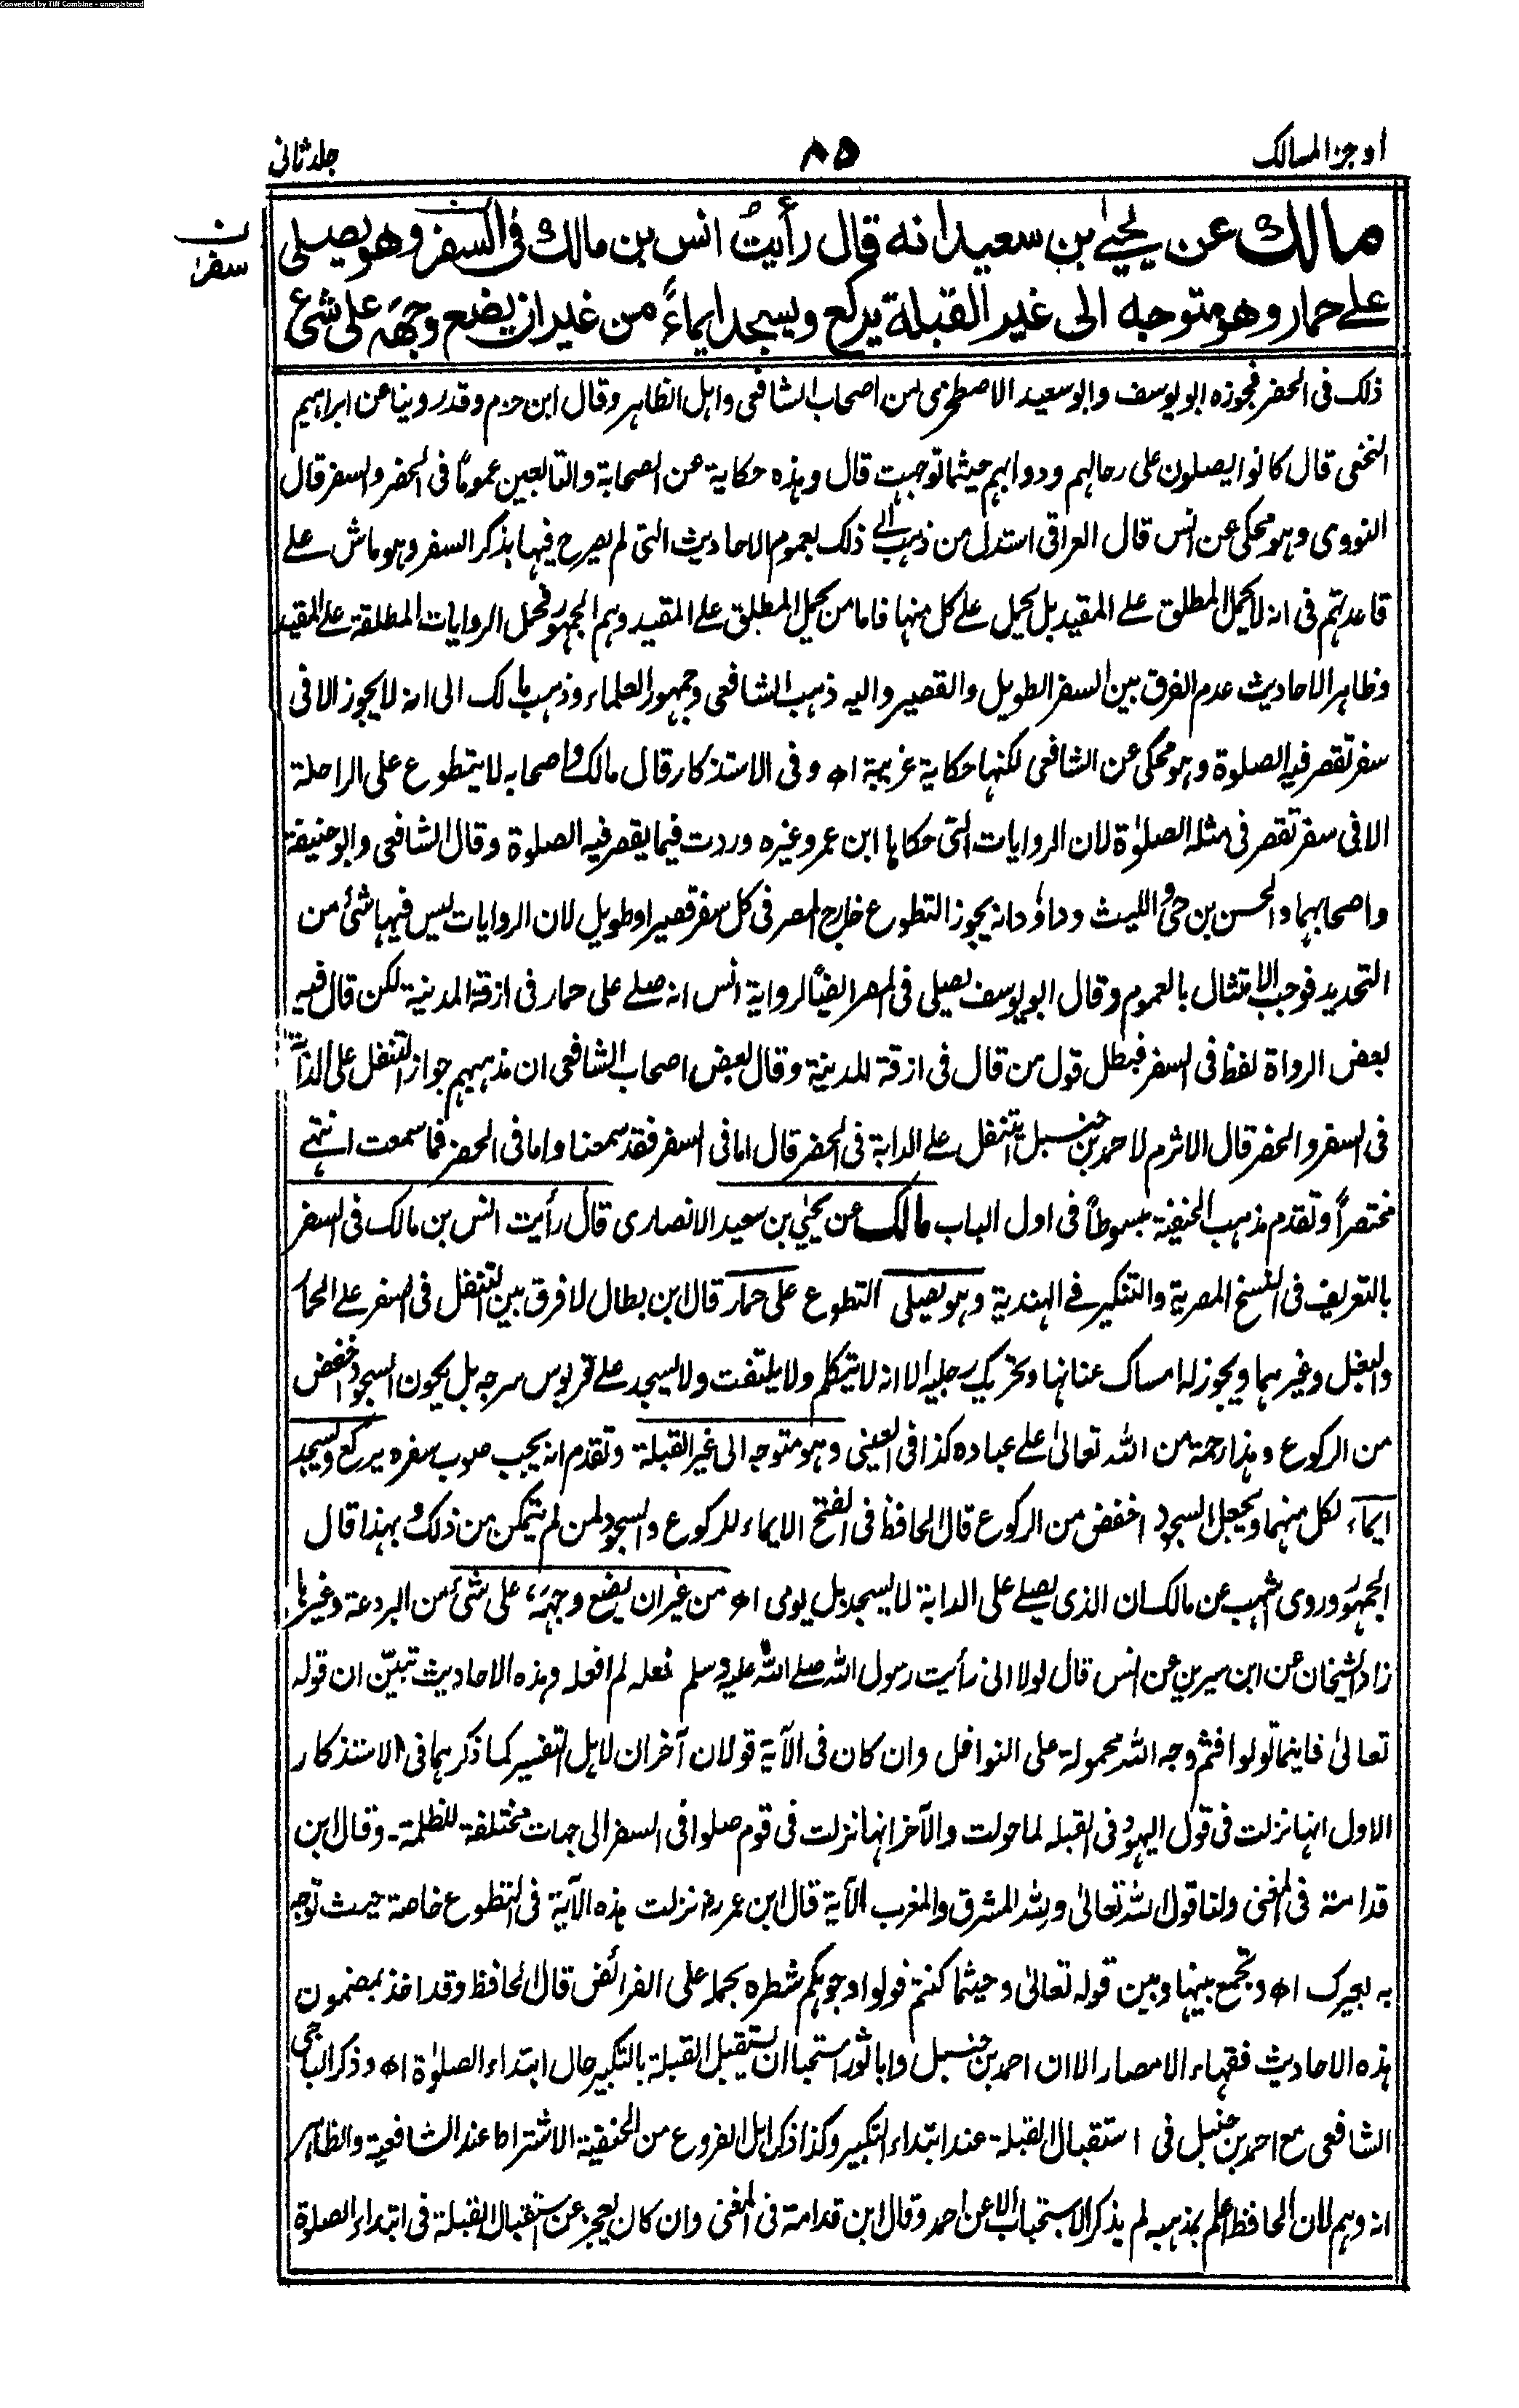 Converted by Tiff Combine - unregistered
اوجز المسالك
٨٥
جلد ثانى
مالك عن يحيى بن سعيد انه قال رأيت انس بن مالك فى السفر وهو يصلى
ن
سفر
على حمار وهو متوجه الى غير القبلة يركع ويسجد ايماءً من غير ان يضع وجهه على شئ
ذلك فى الحضر فجوزه ابو يوسف وابو سعيد الاصطخرى من اصحاب الشافعى واہل الظاہر وقال ابن حزم وقد روينا عن ابراہيم
النخعى قال كانوا يصلون على رحالہم ودوابہم حيثما توجہت قال وہذه حكاية عن الصحابة والتابعين عموماً فى الحضر والسفر قال
النووى وہو محكى عن انس قال العراقى استدل من ذہب الى ذلك بعموم الاحاديث التى لم يصرح فيہا بذكر السفر وہو ماش على
قاعدتہم فى انه لا يحمل المطلق على المقيد بل يحمل على كل منہا فاما من يحمل المطلق على المقيد وہم الجمہور فحمل الروايات المطلقة على المقيد
وظاہر الاحاديث عدم الفرق بين السفر الطويل والقصير واليه ذہب الشافعى وجمہور العلماء وذہب مالك الى انه لا يجوز الا فى
سفر تقصر فيه الصلوة وہو محكى عن الشافعى لكنہا حكاية غريبة اھ وفى الاستذكار قال مالك واصحابه لا يتطوع على الراحلة
الا فى سفر تقصر فى مثله الصلوٰة لان الروايات التى حكاہا ابن عمر وغيره وردت فيما يقصر فيه الصلوة وقال الشافعى وابو حنيفة
واصحابہما والحسن بن حى والليث وداؤد انه يجوز التطوع خارج المصر فى كل سفر قصير او طويل لان الروايات ليس فيہا شئ من
التحديد فوجب الامتثال بالعموم وقال ابو يوسف يصلى فى المصر ايضاً لرواية انس انه صلے على حمار فى ازقة المدينة لكن قال فيه
بعض الرواة لفظ فى السفر فبطل قول من قال فى ازقة المدينة وقال بعض اصحاب الشافعى ان مذہبہم جواز التنفل على الدابة
فى السفر والحضر قال الاثرم لاحمد بن حنبل يتنفل على الدابة فى الحضر قال اما فى السفر فقد سمعنا واما فى الحضر فما سمعت انتہے
مختصراً وتقدم مذہب الحنفية مبسوطاً فى اول الباب مالك عن يحيٰي بن سعيد الانصارى قال رأيت انس بن مالك فى السفر
بالتعريف فى النسخ المصرية والتنكير فے الہندية وہو يصلى التطوع على حمار قال ابن بطال لا فرق بين التنفل فى السفر على الحمار
والبغل وغيرہما ويجوز له امساك عنانہا وتحريك رجليه الا انه لا يتكلم ولا يلتفت ولا يسجد على قربوس سرجه بل يكون السجود اخفض
من الركوع وہذا رحمة من الله تعالىٰ على عباده كذا فى العينى وہو متوجه الى غير القبلة وتقدم انه يجب صوب سفره يركع ويسجد
ايماء لكل منہما ويجعل السجود اخفض من الركوع قال الحافظ فى الفتح الايماء للركوع والسجود لمن لم يتمكن من ذلك وبہذا قال
الجمہور وروى اشہب عن مالك ان الذى يصلے على الدابة لا يسجد بل يومى اھ من غير ان يضع وجہه على شئ من البردعة وغيرہا
زاد الشيخان عن ابن سيرين عن انس قال لولا انى رأيت رسول الله صلے الله عليه وسلم فعله لم افعله وہذه الاحاديث تبيّن ان قوله
تعالىٰ فاينما تولوا فثم وجه الله محمولة على النوافل وان كان فى الآية قولان آخران لاہل التفسير كما ذكرہما فى الاستذكار
الاول انہا نزلت فى قول اليہود فى القبله لما حولت والآخر انہا نزلت فى قوم صلوا فى السفر الى جہات مختلفة للظلمة۔ وقال ابن
قدامة فى المغنى ولنا قول الله تعالىٰ ولله المشرق والمغرب الآية قال ابن عمر رض نزلت ہذه الآية فى التطوع خاصة حيث توجه
به بعيرك اھ وتجمع بينہا وبين قوله تعالىٰ وحيثما كنتم فولوا وجوہكم شطره بحمله على الفرائض قال الحافظ وقد اخذ بمضمون
ہذه الاحاديث فقہاء الامصار الا ان احمد بن حنبل وابا ثور استحبا ان يستقبل القبلة بالتكبير حال ابتداء الصلوٰة اھ وذكر الباجى
الشافعى مع احمد بن حنبل فى استقبال القبلة عند ابتداء التكبير وكذا ذكر اہل الفروع من الحنفية الاشتراط عند الشافعية والظاہر
انه وہم لان الحافظ اعلم بمذہبه لم يذكر الاستحباب الا عن احمد وقال ابن قدامة فى المغنى وان كان يعجز عن استقبال القبلة فى ابتداء الصلوة